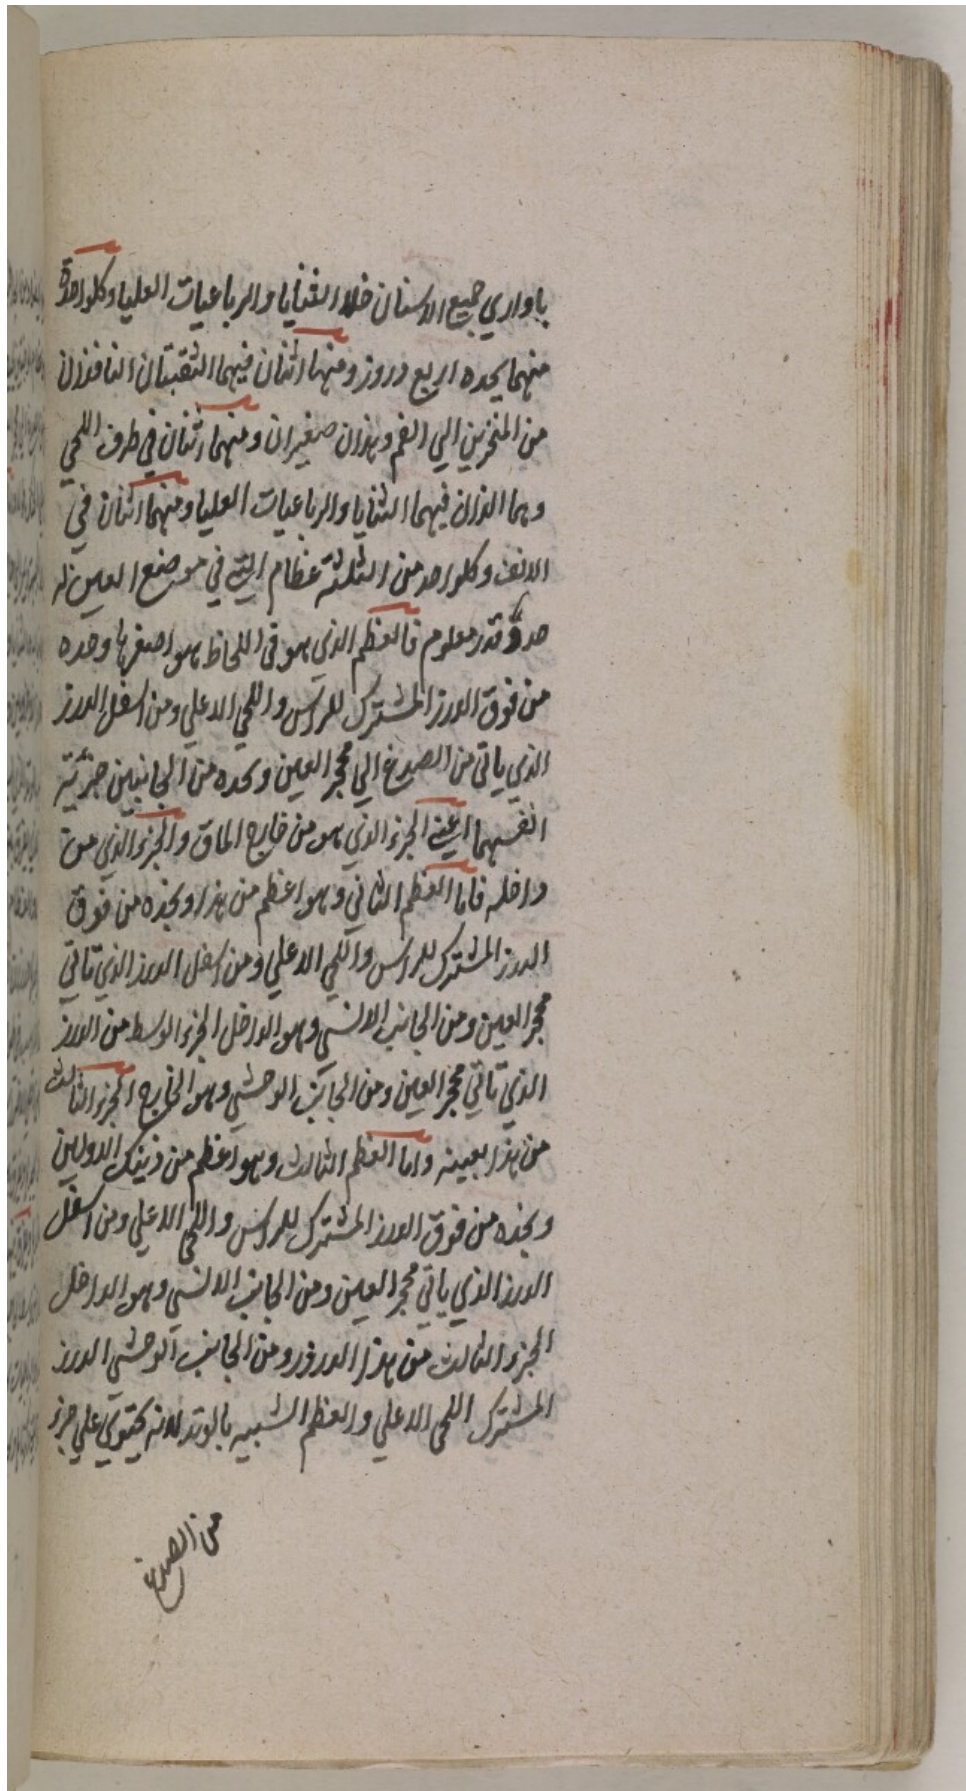 باواري جميع الاسنان خلا الثنايا والرباعيات العليا وكلواحدة
منهما يحده اربع دروز ومنها اثنان فيهما الثقبتان النافذان
من المنخرين الي الفم وهذان صغيران ومنهما اثنان في طرف اللحي
وهما الذان فيهما الثنايا والرباعيات العليا ومنهما اثنان في
الانف وكلواحد من الثلثة عظام التي في موضع العين له
حدة قدر معلوم فالعظم الذي هو في اللحاظ هو اصغرها وحده
من فوق الدرز المشترك للراس واللحي الاعلي ومن اسفل الدرز
الذي ياتي من الصدغ الي محجر العين وحده من الجانبين جزئية
انفسهما اعني الجزء الذي هو من خارج الماق والجزء الذي من
داخله فاما العظم الثاني وهو اعظم من هذا ويحده من فوق
الدرز المشترك للراس واللحي الاعلي ومن اسفل الدرز الذي تاتي
محجر العين ومن الجانب الانسي وهو الداخل الجزء الوسط من الدرز
الذي تاتي محجر العين ومن الجانب الوحشي وهو الخارج الجزء الثالث
من هذا بعينه واما العظم الثالث وهو اعظم من ذينك الاولين
ويحده من فوق الدرز المشترك للراس واللحي الاعلي ومن اسفل
الدرز الذي ياتي محجر العين ومن الجانب الانسي وهو الداخل
الجزء الثالث من هذا الدرز ومن الجانب الوحشي الدرز
المشترك اللحي الاعلي والعظم الشبيه بالوتد لانه يحتوي علي جزء
من الصدغ